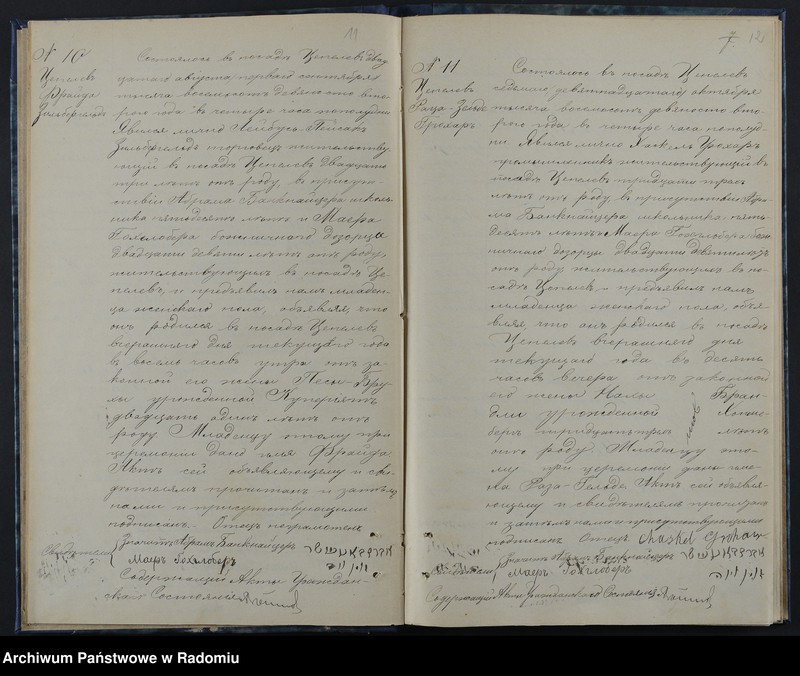 11
№ 10
Цепелевъ
Фрайда
Зильберфельдъ
Состоялось въ посадѣ Цепелевѣ двад
цатаго августа /перваго сентября/
тысяча восемьсотъ девяносто вто
рого года въ четыре часа пополудни
Явился лично
торговецъ жительству
ющій въ посадѣ Цепелевѣ двадцати
три лѣтъ отъ роду, въ присут-
ствіи Абрама Банкнайцера школь
ника пятидесяти лѣтъ и Маера
Гохлобера божничнаго дозорца
двадцати девяти лѣтъ отъ роду,
жительствующихъ въ посадѣ Це
пелевѣ, и предъявилъ намъ младен
ца женскаго пола, объявляя, что
онъ родился въ посадѣ Цепелевѣ
вчерашняго дня текущаго года
въ восемь часовъ утра отъ за
конной его жены Песы-Бру
ли урожденной
двадцать одинъ лѣтъ отъ
роду Младенцу этому при
церемоніи дано имя Фрайда
Актъ сей объявляющему и сви
дѣтелямъ прочитанъ и затѣмъ
нами и присутствующими
подписанъ. Отецъ неграмотенъ
Свидѣтели
Абрамъ Банкнайцеръ
Маеръ Гохлоберъ
Содержащій Акты Граждан-
скаго Состоянія
12
№ 11
Цепелевъ
Раза-Гольда
Грохаръ
Состоялось въ посадѣ Цепелевѣ
седьмаго /девятнадцатаго/ октября
тысяча восемьсотъ девяносто вто
рого года въ четыре часа пополуд
ни Явился лично Хаскель Грохаръ
промышленникъ жительствующій въ
посадѣ Цепелевѣ тридцати трехъ
лѣтъ отъ роду въ присутствіи Абра
ма Банкнайцера школьника пять
десятъ лѣтъ и Маера Гохлобера бож
ничнаго дозорца двадцати девяти лѣтъ
отъ роду жительствующихъ въ по
садѣ Цепелевѣ, и предъявилъ намъ
младенца женскаго пола, объя
вляя, что онъ родился въ посадѣ
Цепелевѣ вчерашняго дня
текущаго года въ десять
часовъ вечера отъ законной
его жены Бран
дли урожденной
тридцать три лѣтъ
отъ роду. Младенцу это-
му при церемоніи дано имя
Раза-Гольда Актъ сей объявля
ющему и свидѣтелямъ прочитанъ
и затѣмъ нами и присутствующими
подписанъ Отецъ Chaskel Grohar
Свидѣтели
Маеръ Гохлоберъ
Содержащій Акты Гражданскаго Состоянія
Archiwum Państwowe w Radomiu